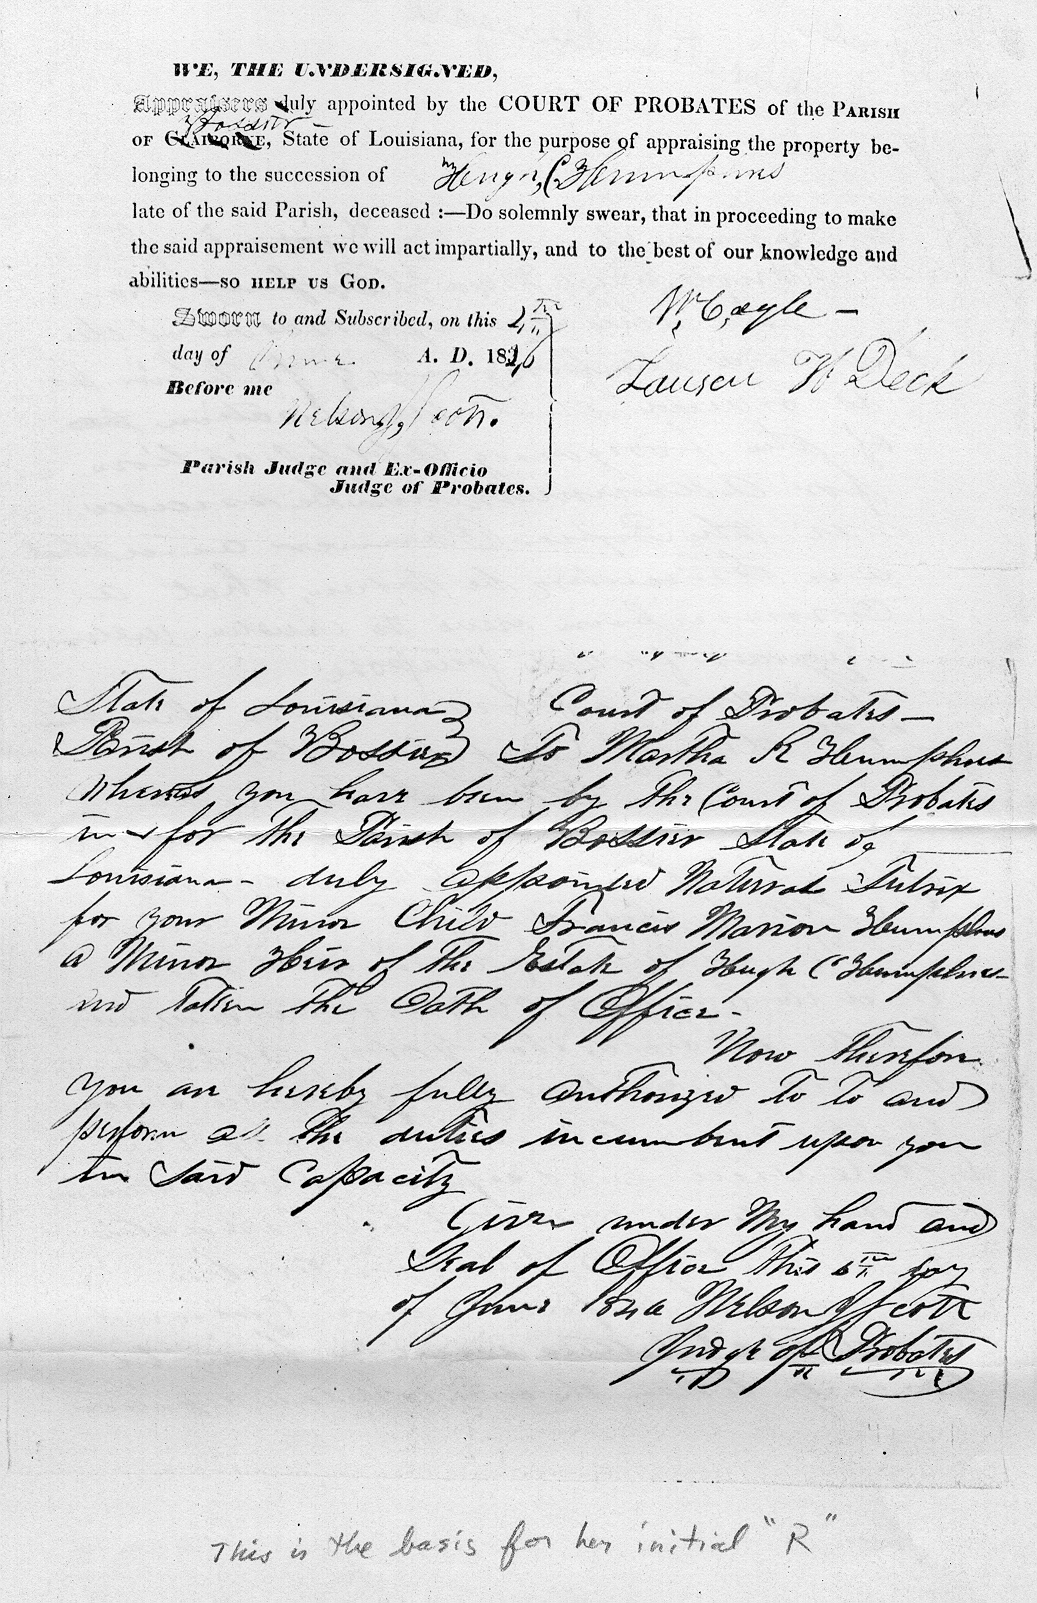 WE, THE UNDERSIGNED,
Appraisers duly appointed by the COURT OF PROBATES of the PARISH
Bossier
OF CLAIBORNE, State of Louisiana, for the purpose of appraising the property be-
longing to the succession of Hugh C Humphries
late of the said Parish, deceased :—Do solemnly swear, that in proceeding to make
the said appraisement we will act impartially, and to the best of our knowledge and
abilities—SO HELP US GOD.
Sworn to and Subscribed, on this
day of June A. D. 18
Before me
Nelson J Scott.
Parish Judge and Ex-Officio
Judge of Probates.
W. Cayle —
W Deck
State of Louisiana Court of Probates —
Parish of Bossier To Martha R Humphries
Whereas you have been by the Court of Probates
in & for the Parish of Bossier State of
Louisiana - duly appointed Natural Tutrix
for your Minor Child Francis Marion Humphries
a Minor Heir of the Estate of Hugh C Humphries
and taken the Oath of Office -
Now therefore
you are hereby fully authorized to to and
perform all the duties incumbent upon you
in said Capacity
Given under My hand and
Seal of Office this 6th day
of June Nelson J Scott
Judge of Probates
This is the basis for her initial "R"